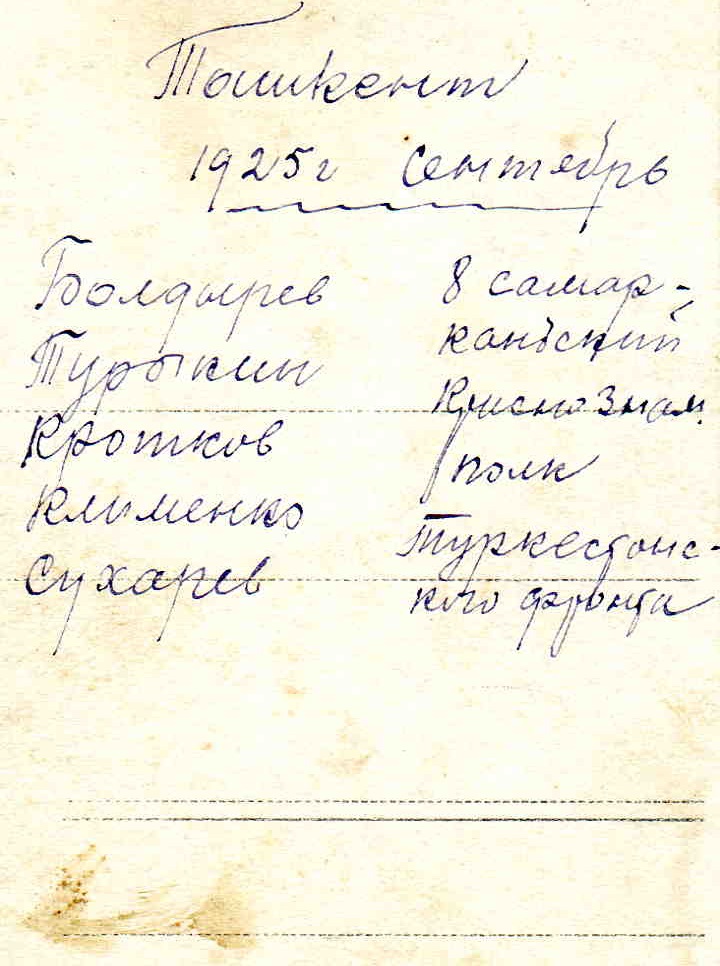 Ташкент
1925 г сентябрь
Болдырев
Турыкин
Кротков
Клименко
Сухарев
8 самар-
кандский
Краснознам.
полк
Туркестанс-
кого фронта